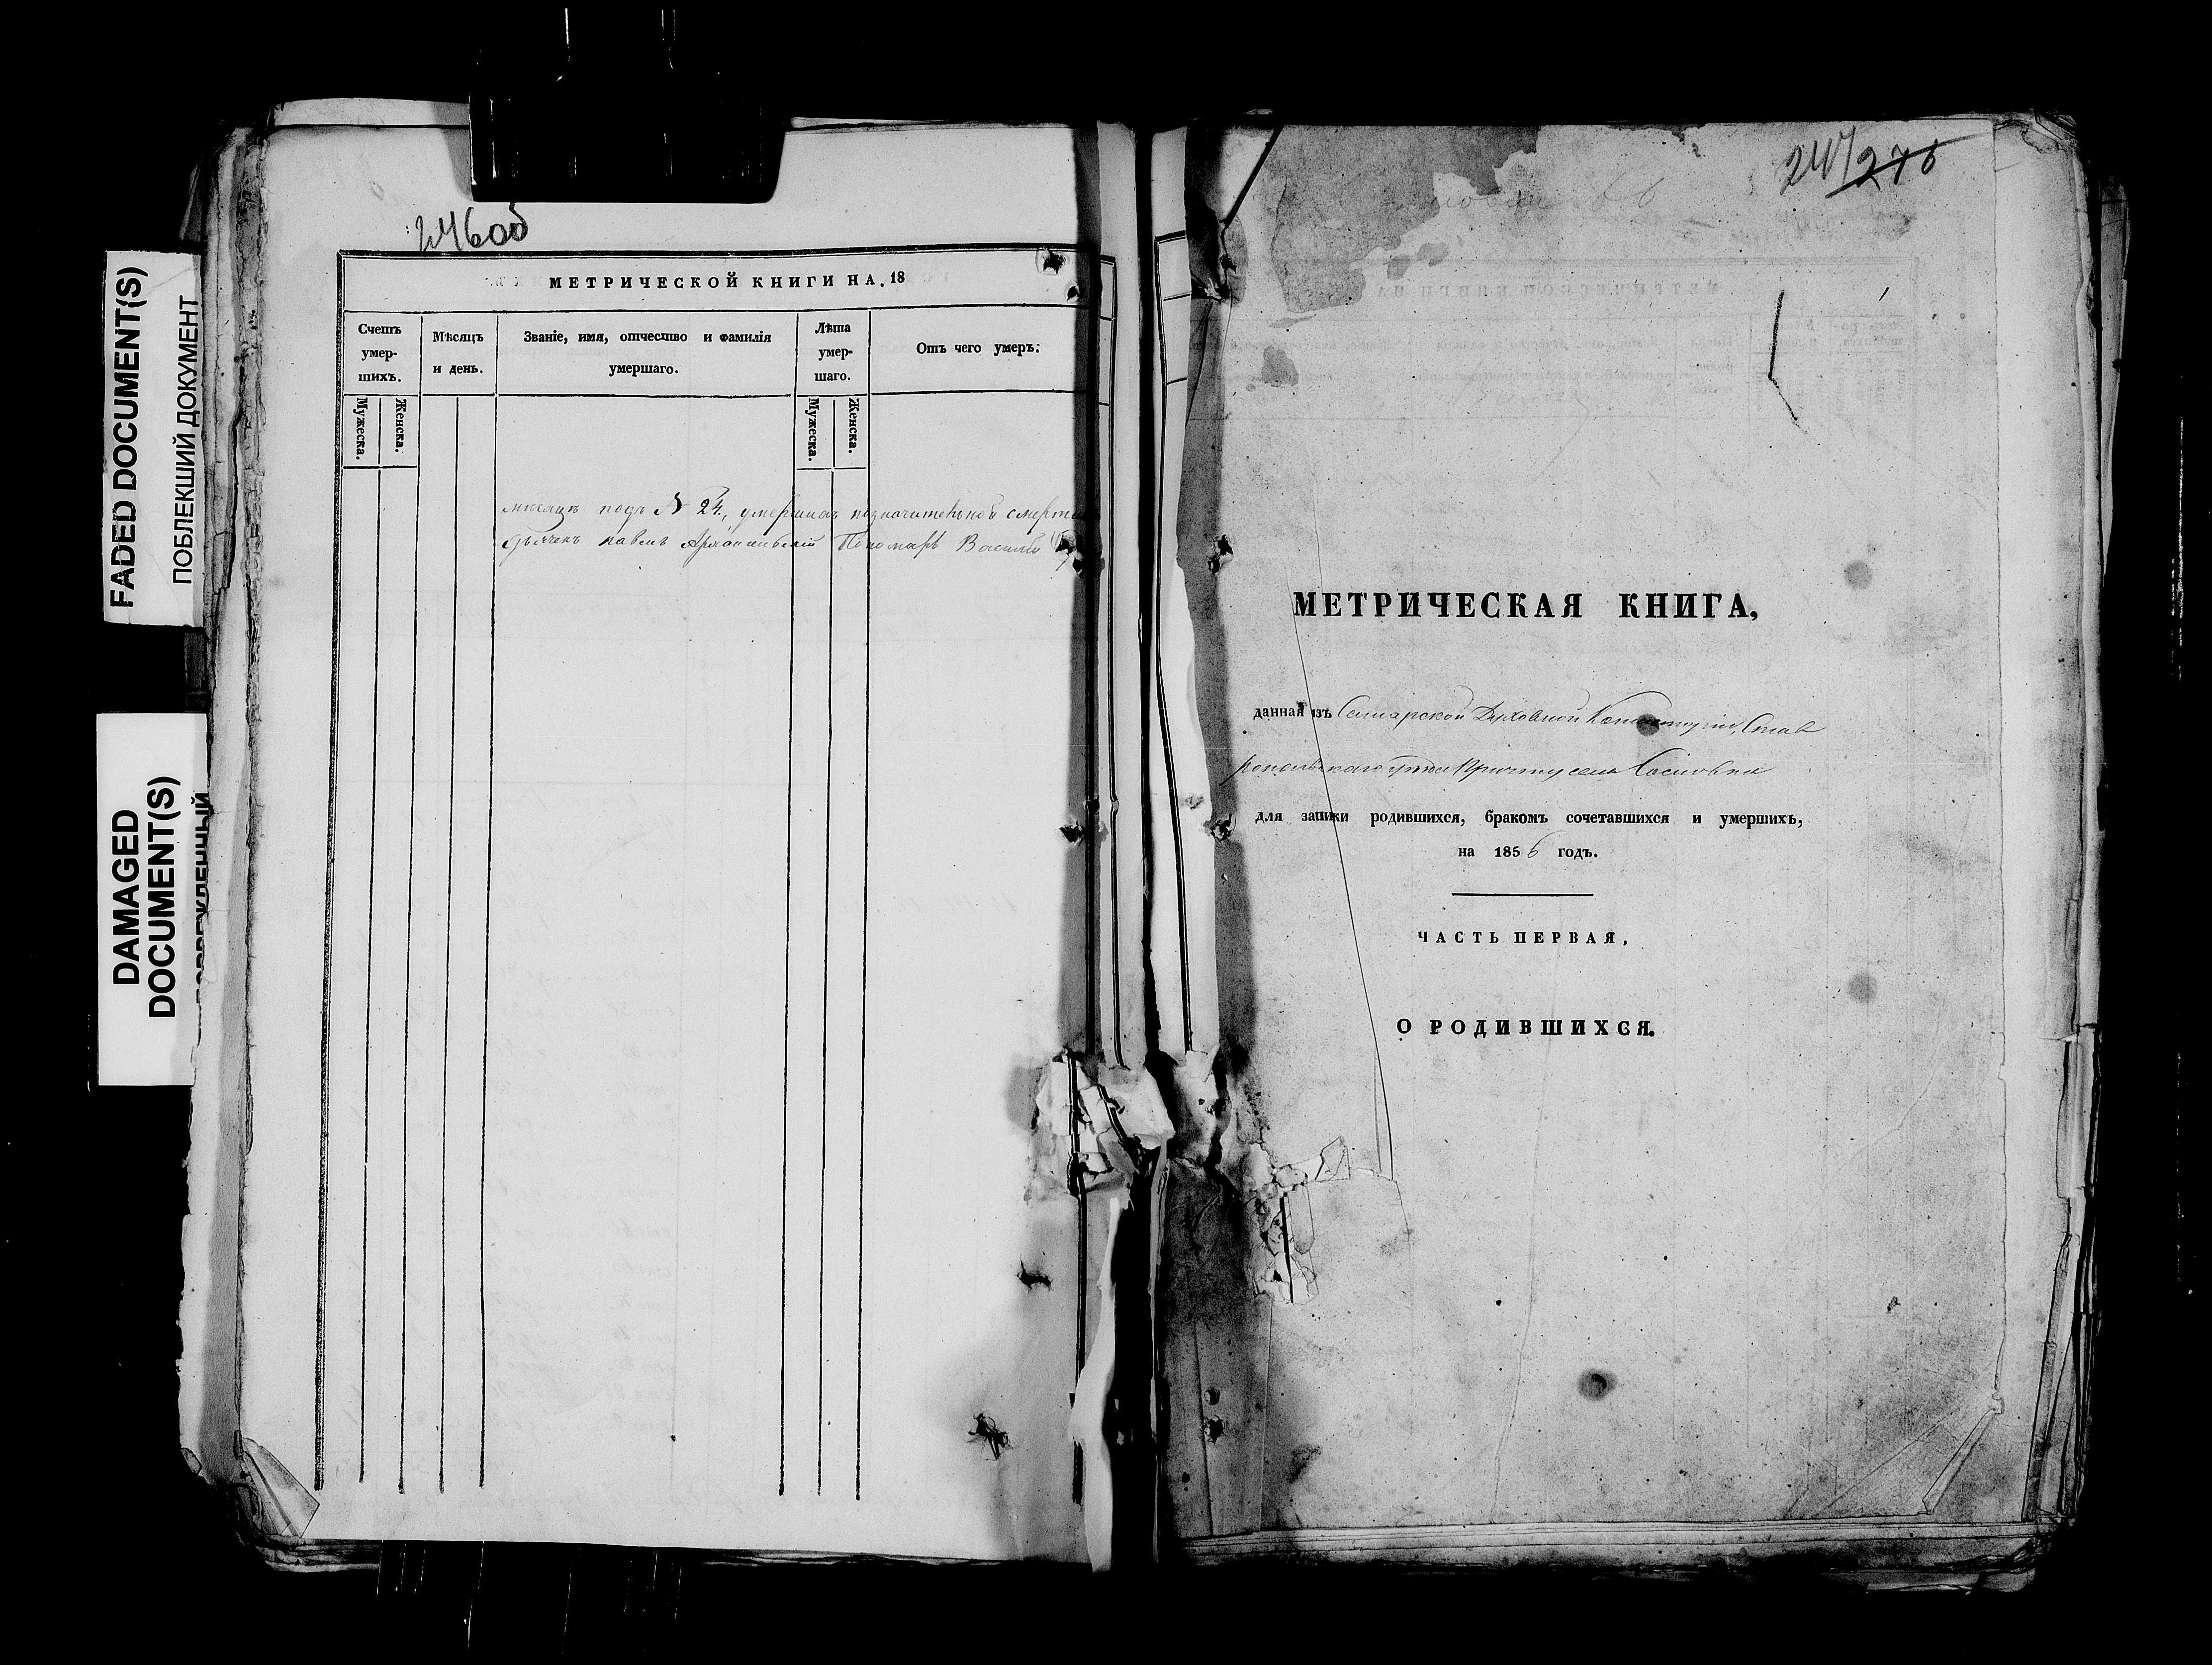 FADED DOCUMENT(S)
ПОБЛЕКШИЙ ДОКУМЕНТ
DAMAGED
DOCUMENT(S)
246об
МЕТРИЧЕСКОЙ КНИГИ НА 18
Счетъ умер-шихъ.
Мѣсяцъ и день.
Званіе, имя, отчество и фамилія умершаго.
Лѣта умер-шаго.
Отъ чего умеръ.
Мужеска.
Женска.
Мужеска.
Женска.
подъ № 24, смерти
Пономарь
247 276
МЕТРИЧЕСКАЯ КНИГА,
данная изъ Самарской Духовной Консисторіи, Став
ропольскаго уѣзда Причту села Сосновки
для записки родившихся, бракомъ сочетавшихся и умершихъ,
на 1856 годъ.
ЧАСТЬ ПЕРВАЯ,
О РОДИВШИХСЯ.